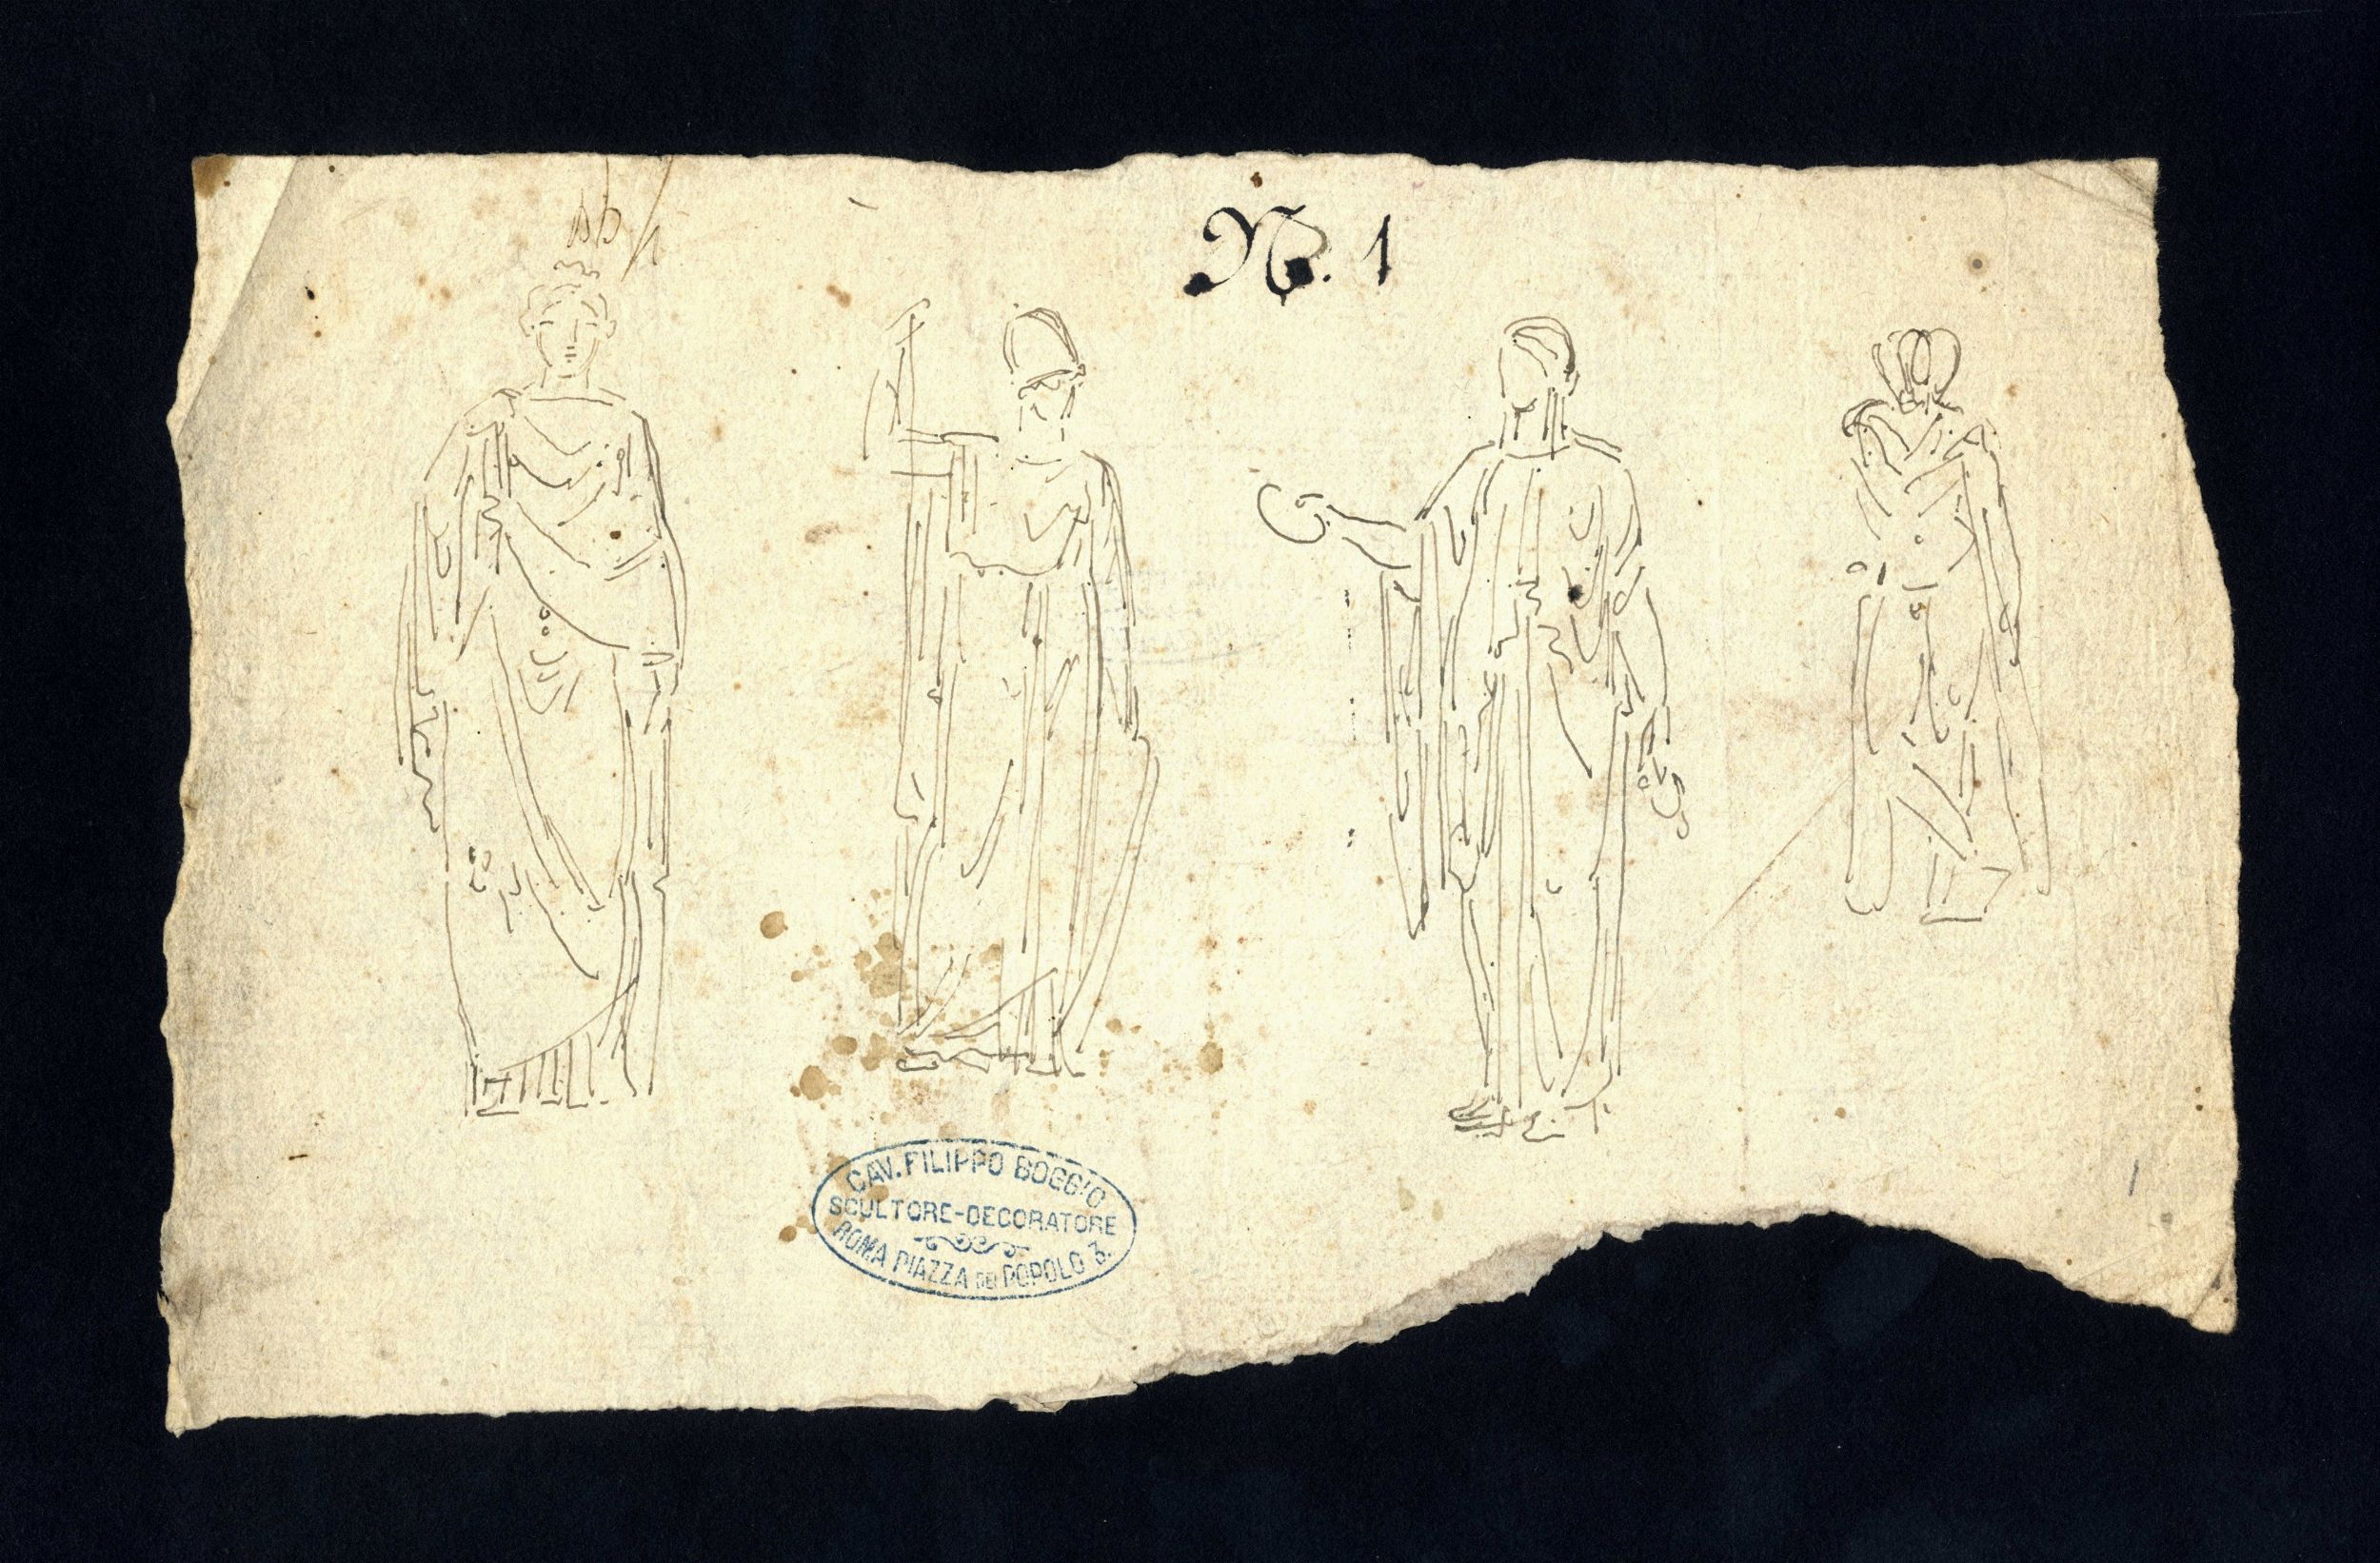 No. 1
CAV. FILIPPO BOGGIO
SCULTORE-DECORATORE
ROMA PIAZZA DEL POPOLO 3.